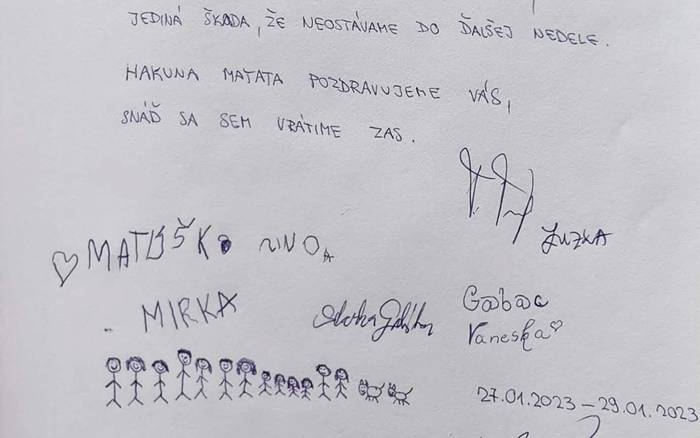 JEDINÁ ŠKODA, ŽE NEOSTÁVAME DO ĎALŠEJ NEDELE.
HAKUNA MATATA POZDRAVUJEME VÁS,
SNÁĎ SA SEM VRÁTIME ZAS.
ZUZKA
♡ MATÚŠKO NINO
MIRKA
Vaneska♡
27.01.2023 – 29.01.2023